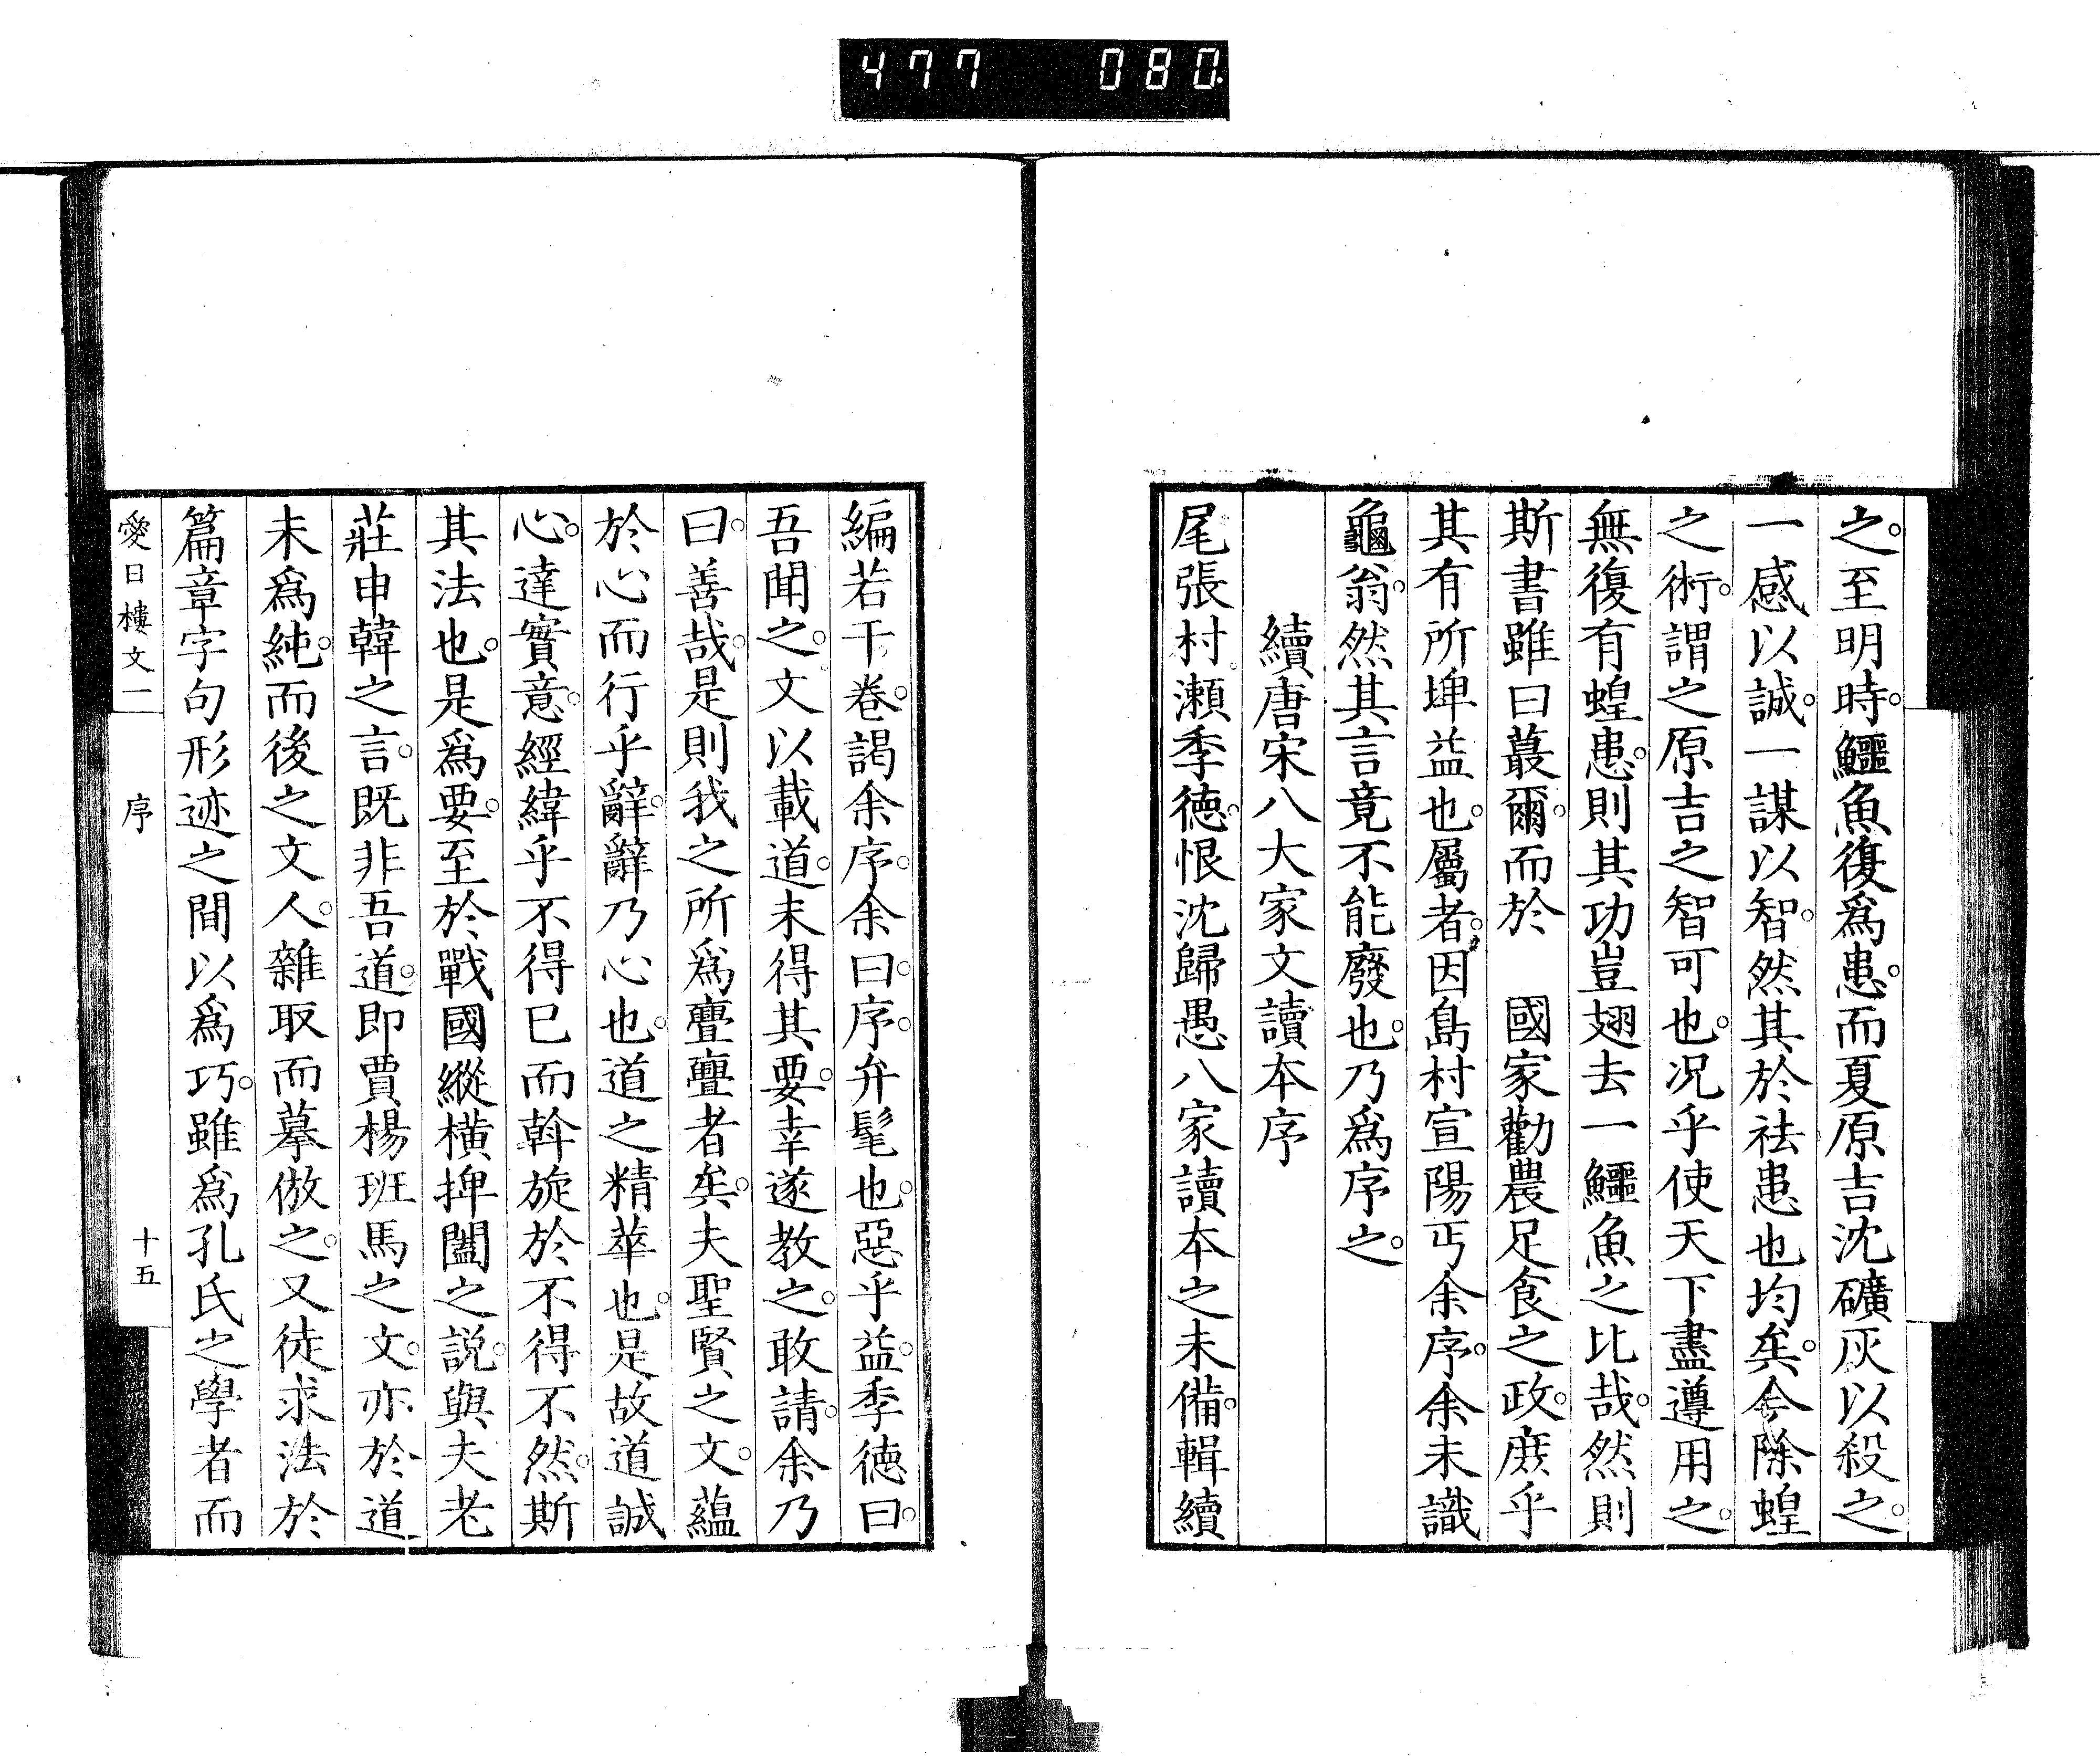 477 080
之。至明時。鱷魚復爲患。而夏原吉沈礦灰以殺之。
一感以誠。一謀以智。然其於祛患也均矣。今除蝗
之術。謂之原吉之智可也。况乎使天下盡遵用之。
無復有蝗患。則其功豈翅去一鱷魚之比哉。然則
斯書雖曰蕞爾。而於　國家勸農足食之政。庶乎
其有所埤益也。屬者。因島村宣陽丐余序。余未識
龜翁。然其言竟不能廢也。乃爲序之。
續唐宋八大家文讀本序
尾張村瀬季德。恨沈歸愚八家讀本之未備。輯續
編若干卷。謁余序。余曰。序。弁髦也。惡乎益。季德曰。
吾聞之。文以載道。未得其要。幸遂教之。敢請。余乃
曰。善哉。是則我之所爲亹亹者矣。夫聖賢之文。蘊
於心而行乎辭。辭乃心也。道之精華也。是故道誠
心。達實意。經緯乎不得已而斡旋於不得不然。斯
其法也。是爲要。至於戰國縱橫捭闔之説。與夫老
莊申韓之言。既非吾道。即賈楊班馬之文。亦於道
未爲純。而後之文人。雜取而摹倣之。又徒求法於
篇章字句形迹之間以爲巧。雖爲孔氏之學者而
愛日樓文一　序　十五